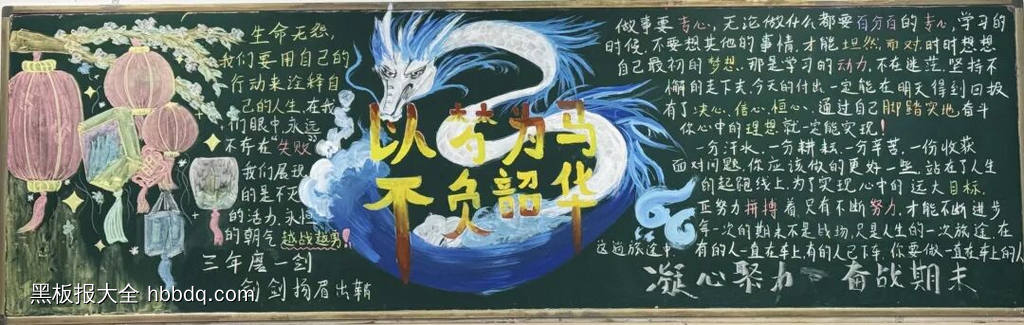 生命无怨,
我们要用自己的
行动来诠释自
己的人生,在我
们眼中,永远
不存在“失败”
我们展现
的是不灭
的活力,永恒
的朝气越战越勇!
三年磨一剑
剑剑扬眉出鞘
以梦为马
不负韶华
做事要专心,无论做什么都要百分百的专心,学习的
时候,不要想其他的事情,才能坦然面对,时时想想
自己最初的梦想,那是学习的动力,不在迷茫,坚持不
懈的走下去,今天的付出一定能在明天得到回报
有了决心、信心、恒心、通过自己脚踏实地奋斗
你心中的理想就一定能实现!
一分汗水,一分耕耘,一分辛苦,一份收获
面对问题,你应该做的更好一些,站在了人生
的起跑线上,为了实现心中的远大目标,
正努力拼搏着,只有不断努力,才能不断进步
每一次的期末不是战场,只是人生的一次旅途,在
这趟旅途中,有的人一直在车上,有的人已下车,你要做一直在车上的人
凝心聚力 奋战期末
黑板报大全 hbbdq.com